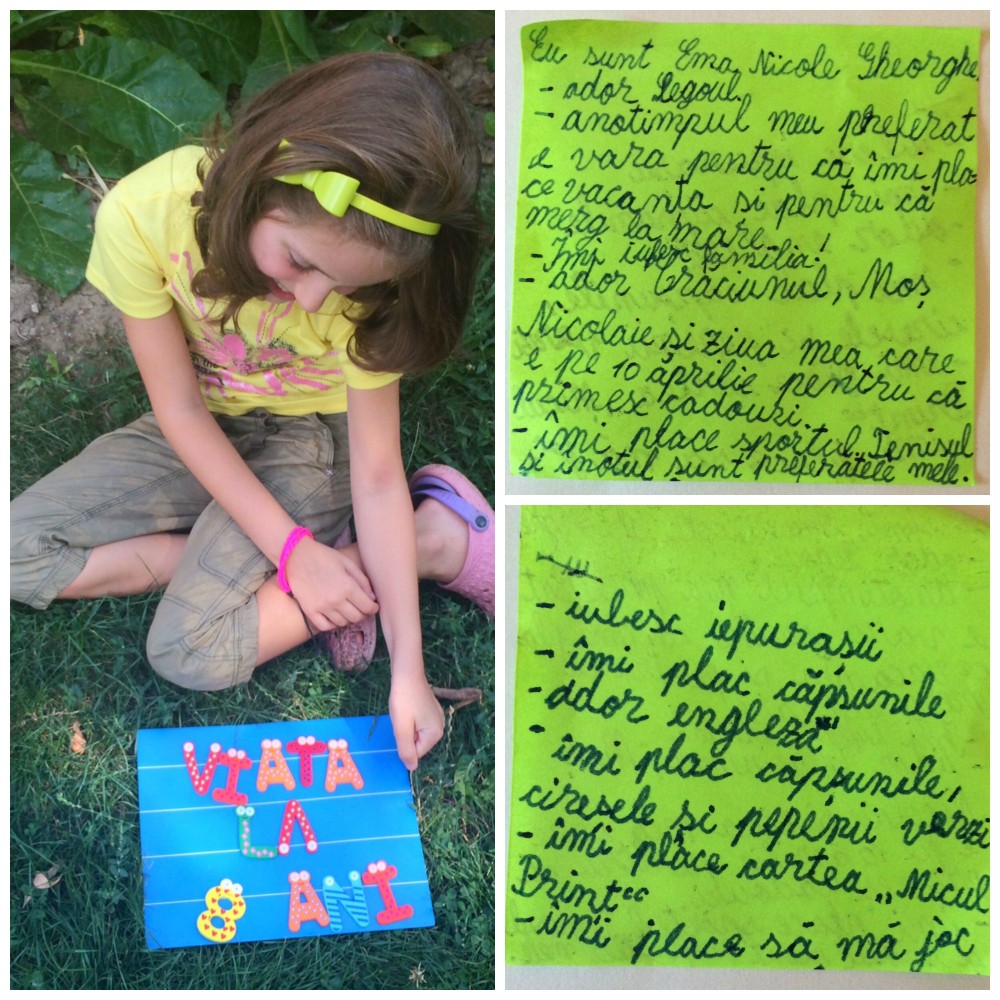 VIATA
LA
8 ANI
Eu sunt Ema Nicole Gheorghe
- ador Legoul.
- anotimpul meu preferat
e vara pentru că îmi pla-
ce vacanta si pentru că
merg la mare.
- Îmi iubesc familia!
- ador Crăciunul, Moș
Nicolaie și ziua mea care
e pe 10 aprilie pentru că
primesc cadouri.
- îmi place sportul. Tenisul
și înotul sunt preferatele mele.
- iubesc iepurașii
- îmi plac căpșunile
- ador engleza
- îmi plac căpșunile,
cireșele și pepenii verzi
- îmi place cartea „Micul
Prinț“
- îmi place să mă joc